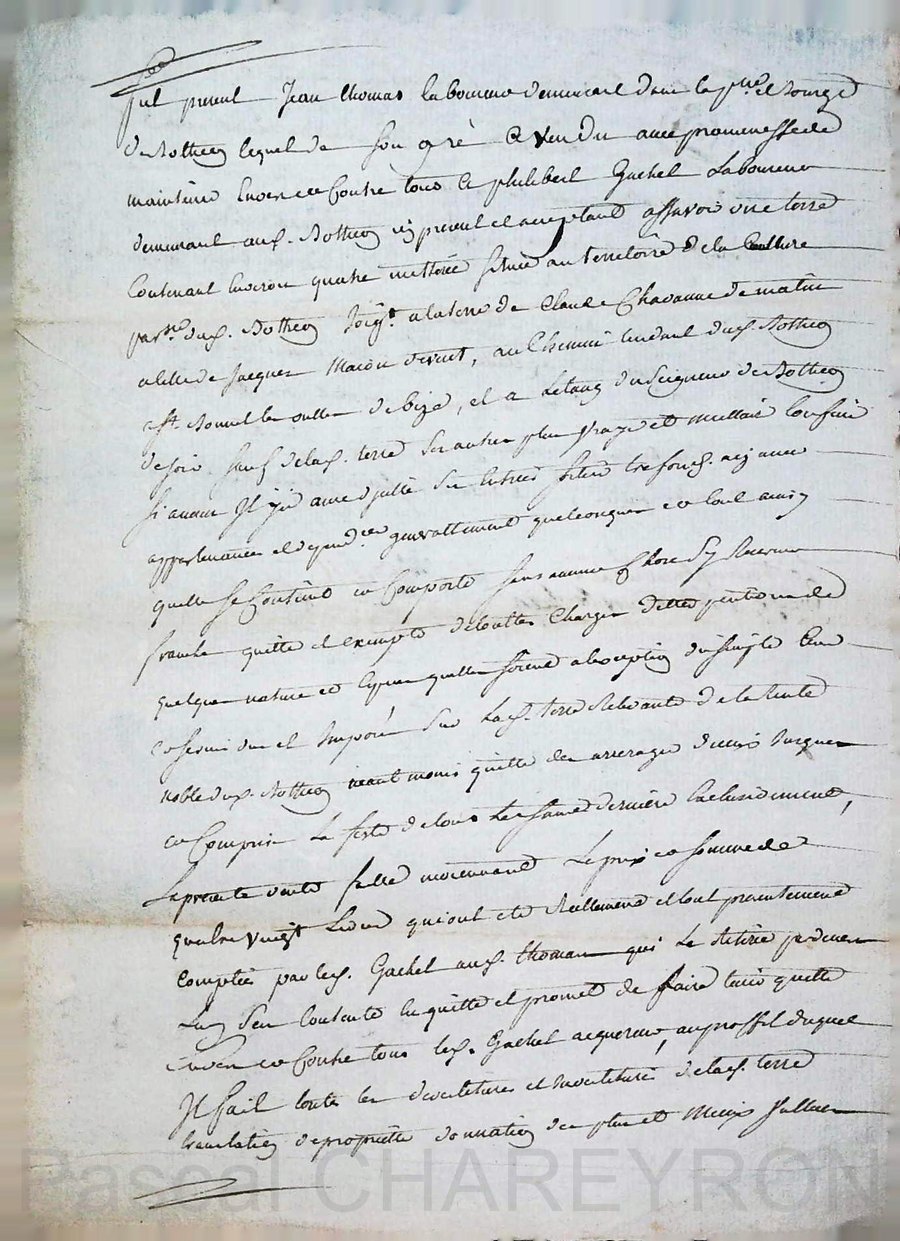 fut present Jean thomas laboureur demeurant dans la p.sse et bourg
de Bothéon lequel de son gré a vendu avec promesse de
maintenir envers et Contre tous a philibert Gachet Laboureur
demeurant aud. Bothéon icy present et acceptant assavoir une terre
Contenant Environ quatre mettérée située au terrcitoire de la Cullliere
par.sse dud. Bothéon Joig.t a la terre de Claude Chavanne de matin
a celle de Jacques Macon de vent, au Chemin tendant dud. Bothéon
a St. Bonnet les oulles de bize, et a Letang du Seigneur de Bothéon
de soir sauf de lad. terre ses autres plus vrays et meilleurs Confins
si aucuns Il y a avec
appartenances et depend.ces generallement quelconques et tout ainsy
quelle se Contient et Comporte sans aucune Chose Sy Reserver
franche quitte et exempte de touttes Charges dettes pentions de
quelque nature et Espece quelles soient a lexception du simple Cens
et servis du et Imposé sur Lad. terre Relevante de la Rente
noble dud. Bothéon neantmoins quitte des arrerages diceux Jusques
et Compris La feste de tous Les Saints derniere Exclusivement,
La presente vente faitte moiennant Le prix et somme de
quatre vingt Livres qui ont eté Reellement et tout presentement
Comptée par led. Gachet aud. thomas qui La Retirée pardevers
Luy Sen Contente En quitte et promet de faire tenir quitte
Envers et Contre tous led. Gachet acquereur, au proffit duquel
Il fait toutes les devetitures et Investitures de lad. terre
translation de proprietté donnation de plus et Mieux vallues
Pascal CHAREYRON